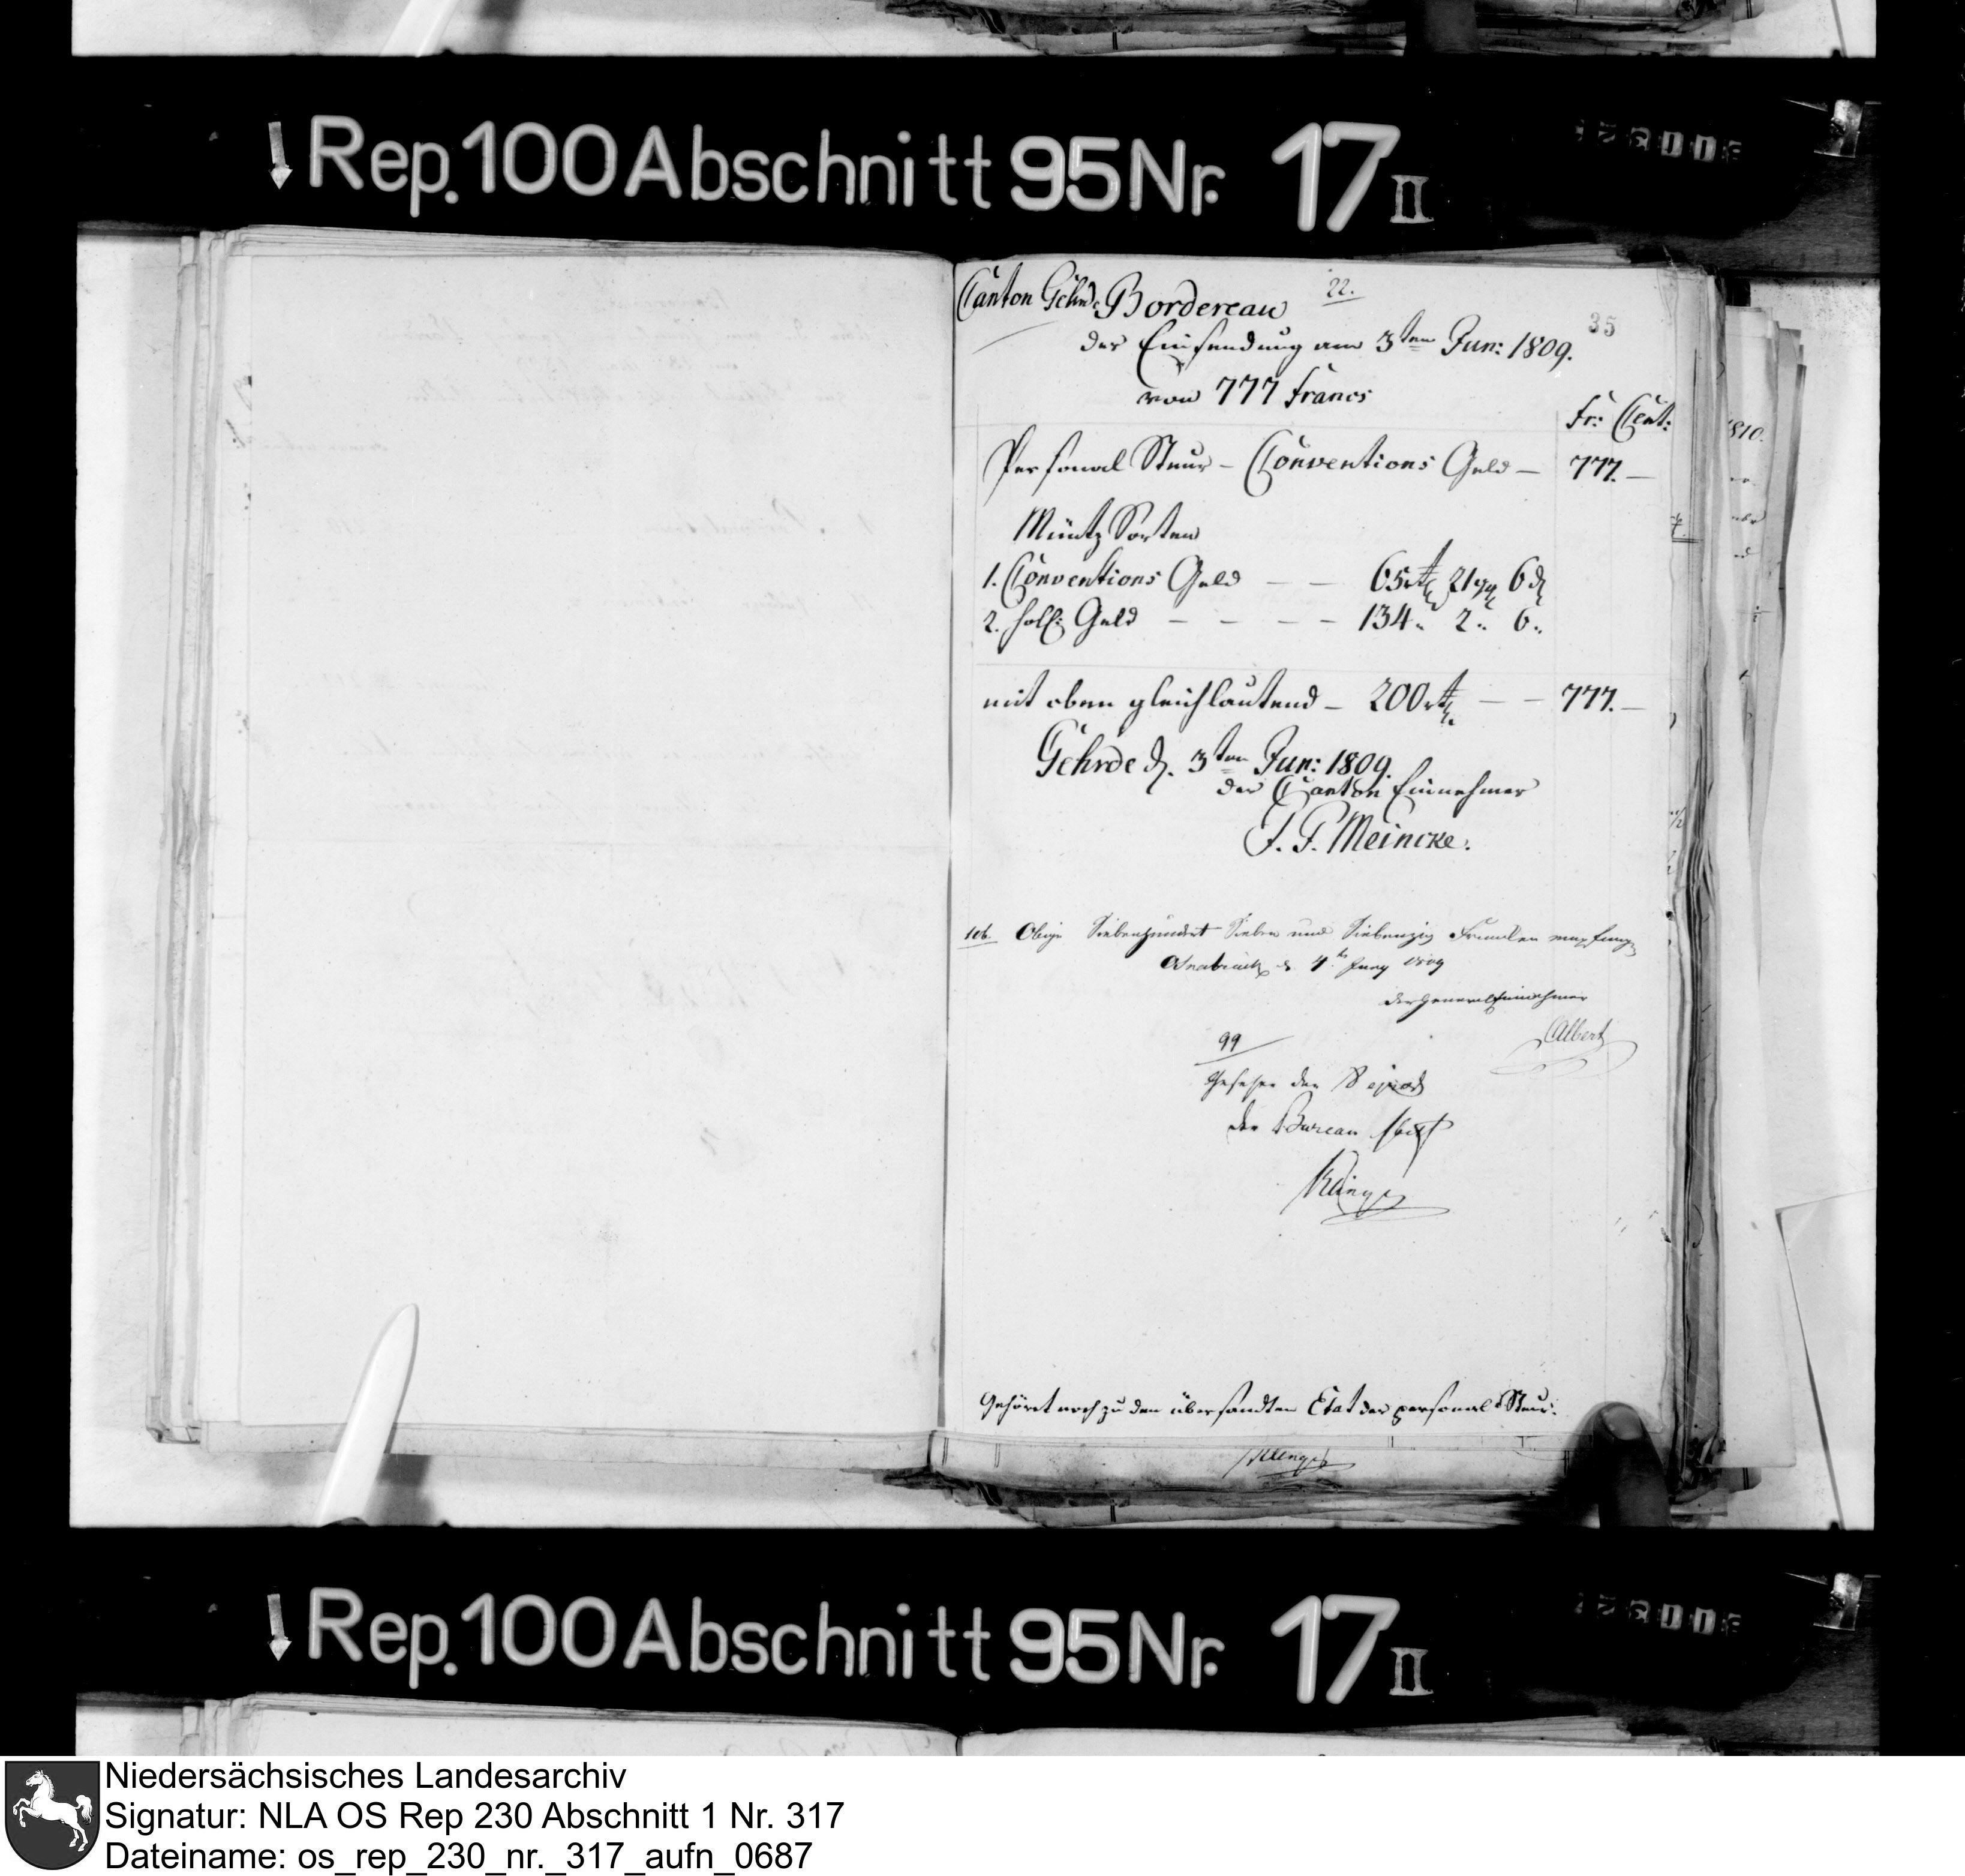 Rep. 100 Abschnitt 95 Nr. 17 II
Canton Gehrde Bordereau 22.
35
der Einsendung am 3ten Jun: 1809.
von 777 francs
Fr: Cent:
Personal Steur – Conventions Geld – 777. –
Müntz Sorten
1. Conventions Geld – – 65 rt 21 gg 6 d
2. holl: Geld – – – – 134 " 2 " 6 "
mit oben gleichlautend – 200 rt – – 777. –
Gehrde d. 3ten Jun: 1809.
der Canton Einnehmer
J. F. Meincke.
106. Obige Siebenhundert Sieben und Siebenzig Franken empfangen
Osnabrück d 4ten Juny 1809
der General Einnehmer
Albert
99
Gesehen der
der Bureau Chef
Gehöret noch zu den übersandten Etat der personal Steur.
1810.
Rep. 100 Abschnitt 95 Nr. 17 II
Niedersächsisches Landesarchiv
Signatur: NLA OS Rep 230 Abschnitt 1 Nr. 317
Dateiname: os_rep_230_nr._317_aufn_0687